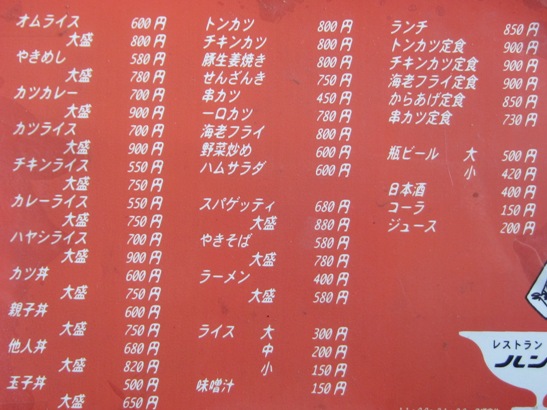 オムライス 600円
大盛 800円
やきめし 580円
大盛 780円
カツカレー 700円
大盛 900円
カツライス 700円
大盛 900円
チキンライス 550円
大盛 750円
カレーライス 550円
大盛 750円
ハヤシライス 700円
大盛 900円
カツ丼 600円
大盛 750円
親子丼 600円
大盛 750円
他人丼 680円
大盛 820円
玉子丼 500円
大盛 650円
トンカツ 800円
チキンカツ 800円
豚生姜焼き 800円
せんざんき 750円
串カツ 450円
一口カツ 780円
海老フライ 800円
野菜炒め 600円
ハムサラダ 600円
スパゲッティ 680円
大盛 880円
やきそば 580円
大盛 780円
ラーメン 400円
大盛 580円
ライス 大 300円
中 200円
小 150円
味噌汁 150円
ランチ 850円
トンカツ定食 900円
チキンカツ定食 900円
海老フライ定食 900円
からあげ定食 850円
串カツ定食 730円
瓶ビール 大 500円
小 420円
日本酒 400円
コーラ 150円
ジュース 200円
レストラン